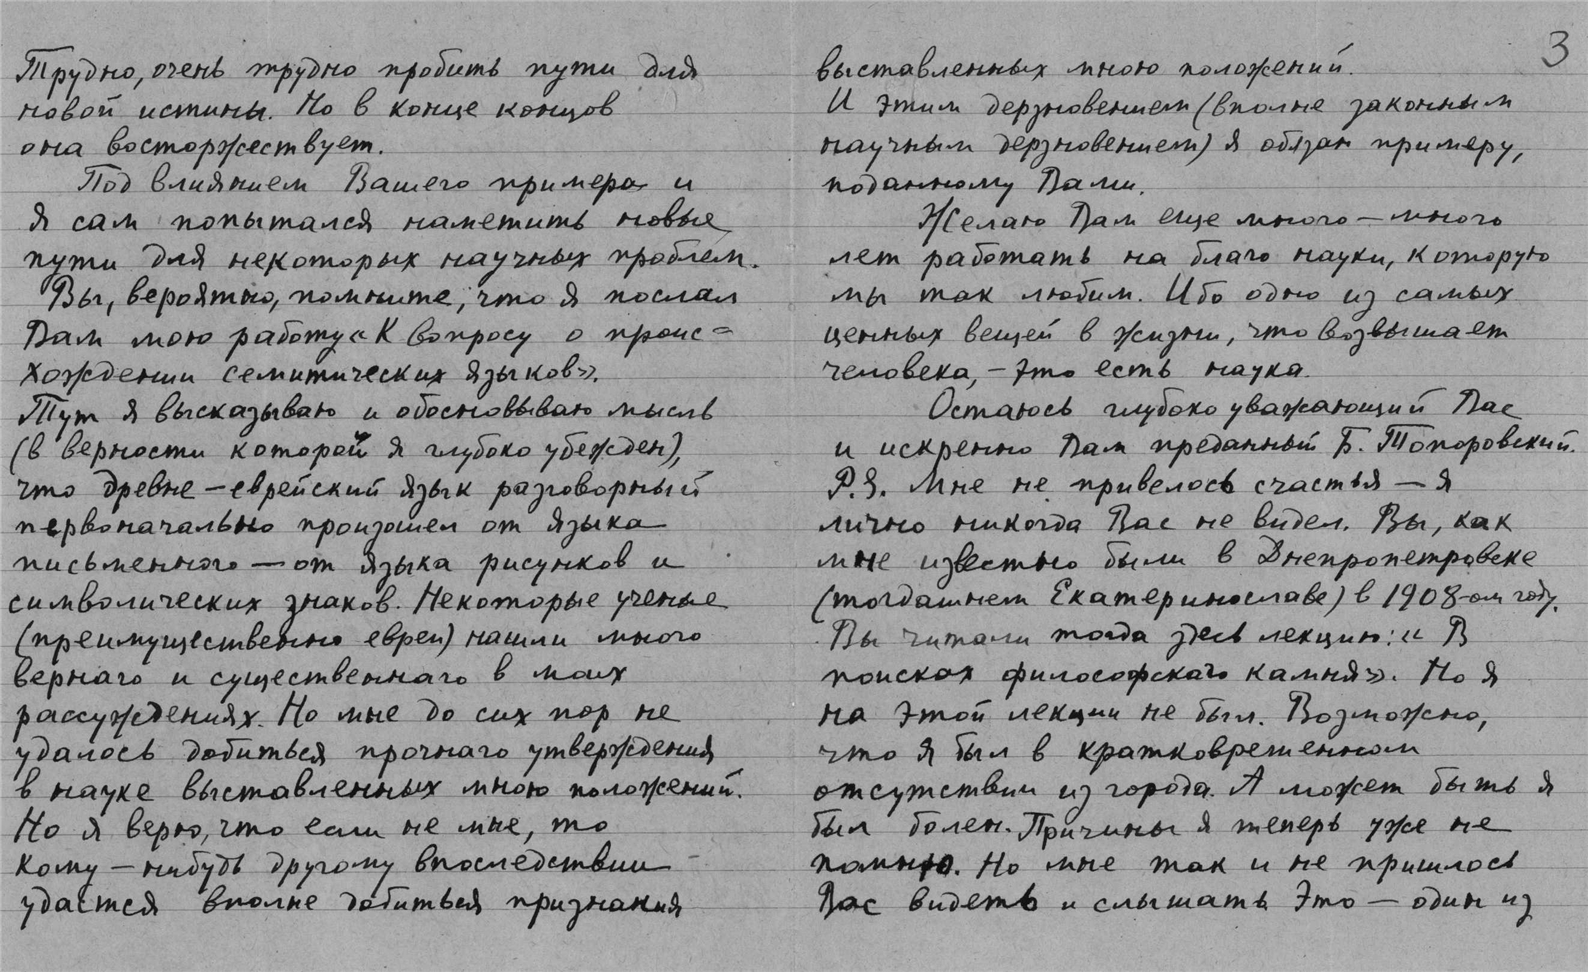 Трудно, очень трудно пробить пути для
новой истины. Но в конце концов
она восторжествует.
Под влиянием Вашего примера и
я сам попытался наметить новые
пути для некоторых научных проблем.
Вы, вероятно, помните, что я послал
Вам мою работу «К вопросу о проис=
хождении семитических языков».
Тут я высказываю и обосновываю мысль
(в верности которой я глубоко убежден),
что древне-еврейский язык разговорный
первоначально произошел от языка
письменного — от языка рисунков и
символических знаков. Некоторые ученые
(преимущественно евреи) нашли много
вернаго и существеннаго в моих
рассуждениях. Но мне до сих пор не
удалось добиться прочнаго утверждения
в науке выставленных мною положений.
Но я верю, что если не мне, то
кому-нибудь другому впоследствии
удастся вполне добиться признания
3
выставленных мною положений.
И этим дерзновением (вполне законным
научным дерзновением) я обязан примеру,
поданному Вами.
Желаю Вам еще много-много
лет работать на благо науки, которую
мы так любим. Ибо одно из самых
ценных вещей в жизни, что возвышает
человека, - это есть наука.
Остаюсь глубоко уважающий Вас
и искренно Вам преданный Б. Топоровский.
P.S. Мне не привелось счастья — я
лично никогда Вас не видел. Вы, как
мне известно были в Днепропетровске
(тогдашнем Екатеринославе) в 1908-ом году.
Вы читали тогда здесь лекцию: «В
поисках философскаго камня». Но я
на этой лекции не был. Возможно,
что я был в кратковременном
отсутствии из города. А может быть я
был болен. Причины я теперь уже не
помню. Но мне так и не пришлось
Вас видеть и слышать. Это — один из